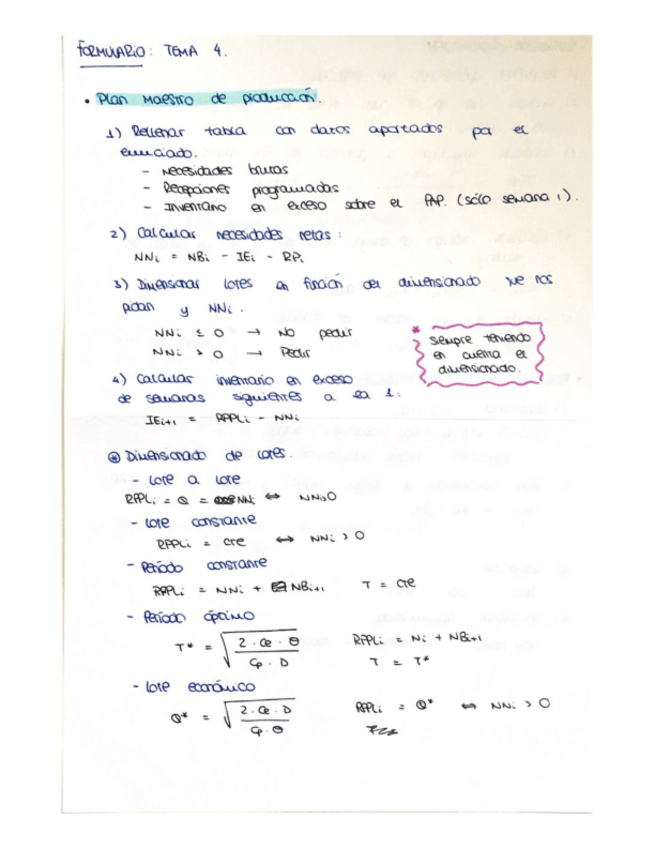 FORMULARIO: TEMA 4.
• Plan maestro de producción.
1) Rellenar tabla con datos aportados por el
enunciado.
- Necesidades brutas
- Recepciones programadas
- Inventario en exceso sobre el PAP. (sólo semana 1).
2) Calcular necesidades netas:
NNi = NBi - IEi - RPi
3) Dimensionar lotes en función del dimensionado que nos
pidan y NNi.
NNi ≤ 0 → No pedir
NNi > 0 → Pedir
* Siempre teniendo
en cuenta el
dimensionado.
4) Calcular inventario en exceso
de semanas siguientes a la 1:
IEi+1 = RPPLi - NNi
⊛ Dimensionado de lotes.
- Lote a lote
RPPLi = Q = NNi ⇔ NNi>0
- Lote constante
RPPLi = cte ⇔ NNi > 0
- Período constante
RPPLi = NNi + NBi+1 T = cte
- Período óptimo
T* = √(2·Ce·θ / Cp·D) RPPLi = Ni + NBi+1
T = T*
- Lote económico
Q* = √(2·Ce·D / Cp·θ) RPPLi = Q* ⇔ NNi > 0